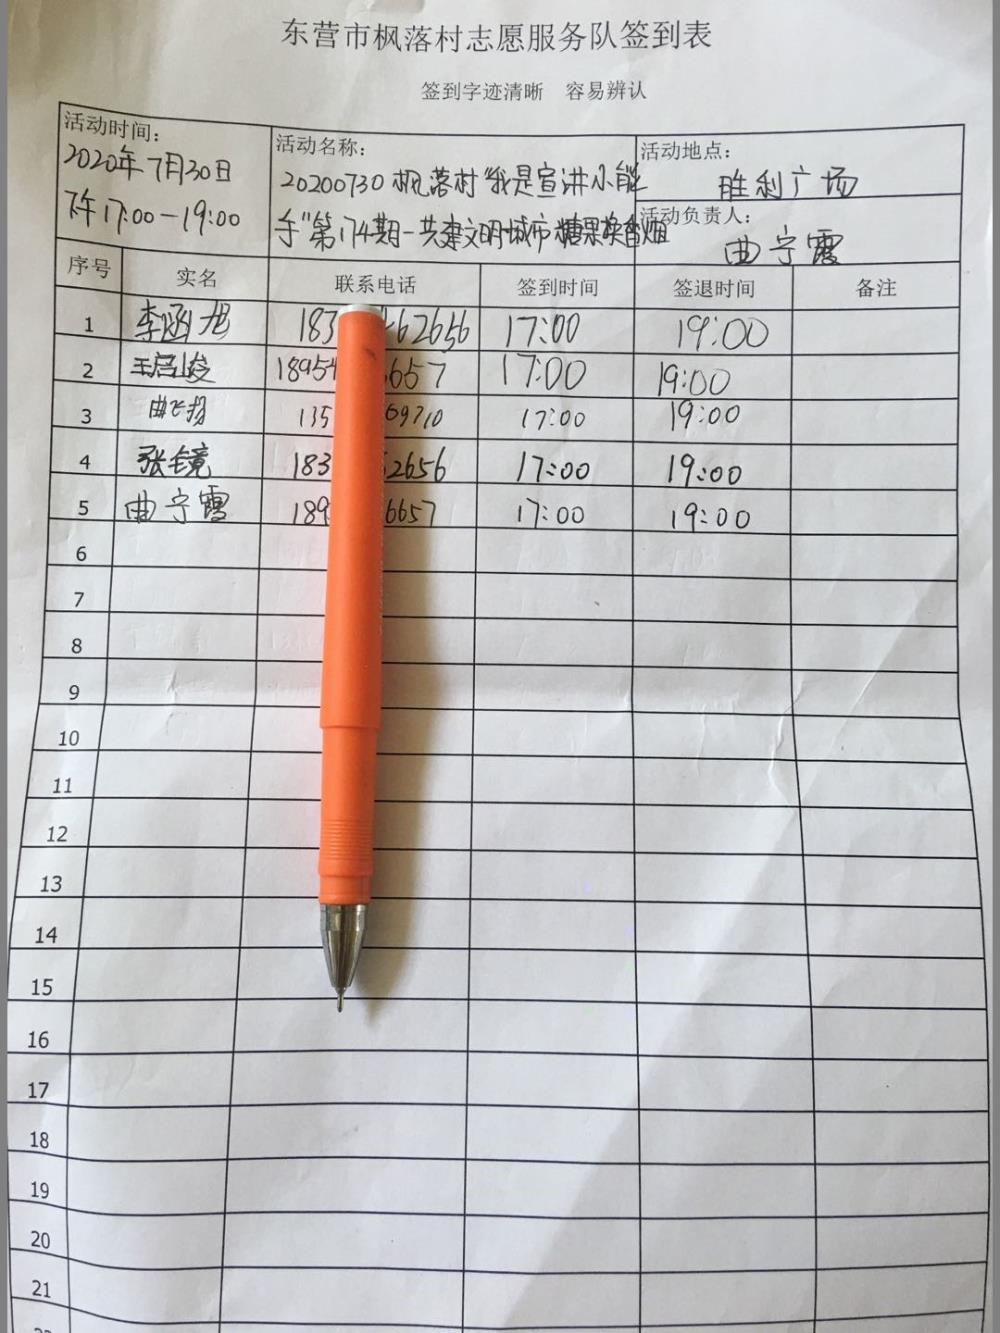 东营市枫落村志愿服务队签到表
签到字迹清晰 容易辨认
活动时间：
2020年7月30日
下午17:00-19:00
活动名称：
20200730枫落村"我是宣讲小能
手"第174期-共建文明城市糖果换烟
活动地点：
胜利广场
活动负责人：
曲宁霞
序号 实名 联系电话 签到时间 签退时间 备注
1 李涵旭 183 62656 17:00 19:00
2 王启峻 18954 657 17:00 19:00
3 曲飞扬 135 69710 17:00 19:00
4 张镜 183 2656 17:00 19:00
5 曲宁霞 189 6657 17:00 19:00
6
7
8
9
10
11
12
13
14
15
16
17
18
19
20
21